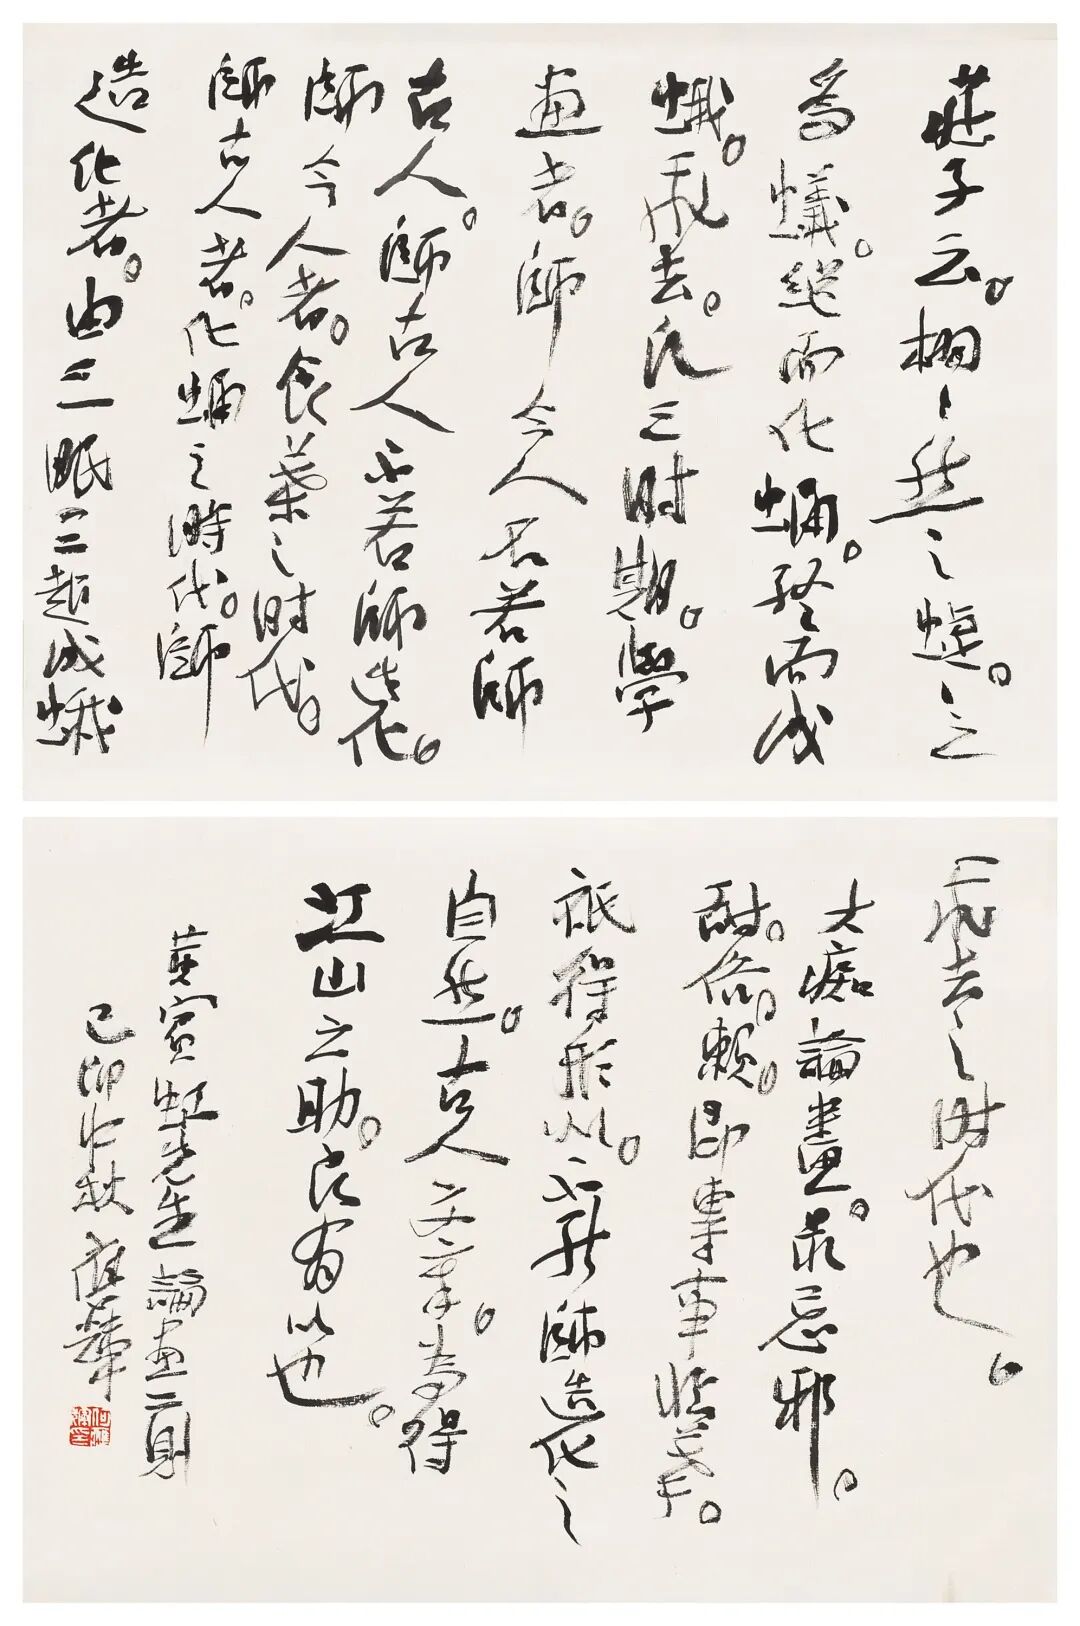 莊子云。栩々然之蝶。々之
為蟻。繼而化蛹。終而成
蛾。飛去。凡三时期。學
畫者。師今人不若師
古人。師古人不若師造化。
師今人者。食葉之时代。
師古人者。化蛹之時代。師
造化者。由三眠三起成蛾
飛去之时代也。
大癡論畫。最忌邪。
甜。俗。賴。即專事臨摹。
衹得形似。不能師造化之
自然。古人文章。為得
江山之助。良有以也。
黄賓虹先生論畫二則
己卯中秋 應輝
何應輝印